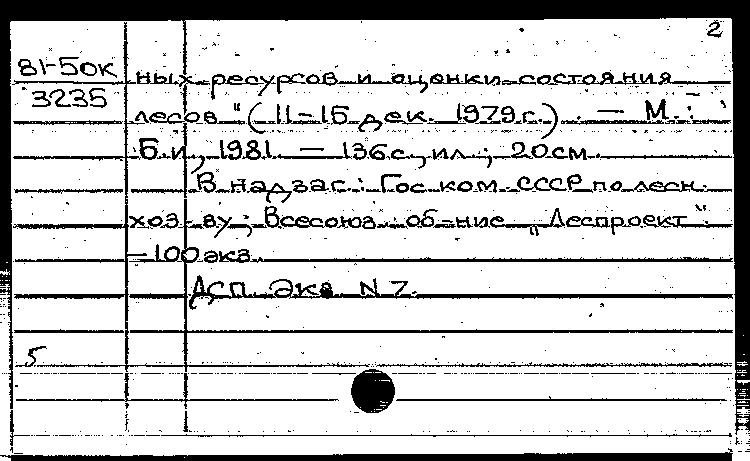 2
81-50к
3235
ных ресурсов и оценки состояния
лесов" (11-15 дек. 1979г.). — М.:
Б.и., 1981. — 136с., ил.; 20см.
В надзаг.: Гос ком. СССР по лесн.
хоз-ву; Всесоюз. об-ние „Леспроект".
— 100экз.
ДСП. Экз. N 7.
5